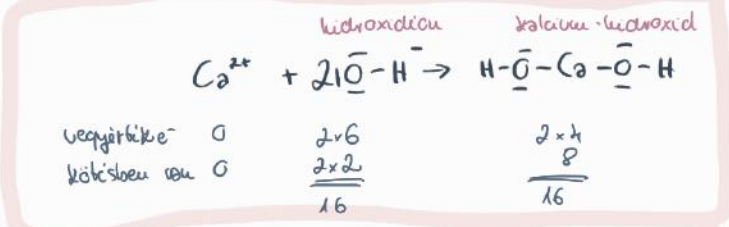 hidroxidion kalcium-hidroxid
Ca²⁺ + 2 |O̲̅-H⁻ → H-O̲̅-Ca-O̲̅-H
vegyértéke⁻ 0 2×6 2×4
kötésben van 0 2×2 8
16 16